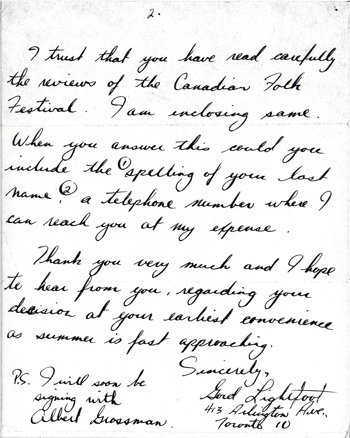 2.
I trust that you have read carefully
the reviews of the Canadian Folk
Festival. I am inclosing same.
When you answer this could you
include the ① spelling of your last
name, ② a telephone number where I
can reach you at my expense.
Thank you very much and I hope
to hear from you, regarding your
decision at your earliest convenience
as summer is fast approaching.
Sincerely,
Gord Lightfoot
413 Arlington Ave.
Toronto 10
P.S. I will soon be
signing with
Albert Grossman.